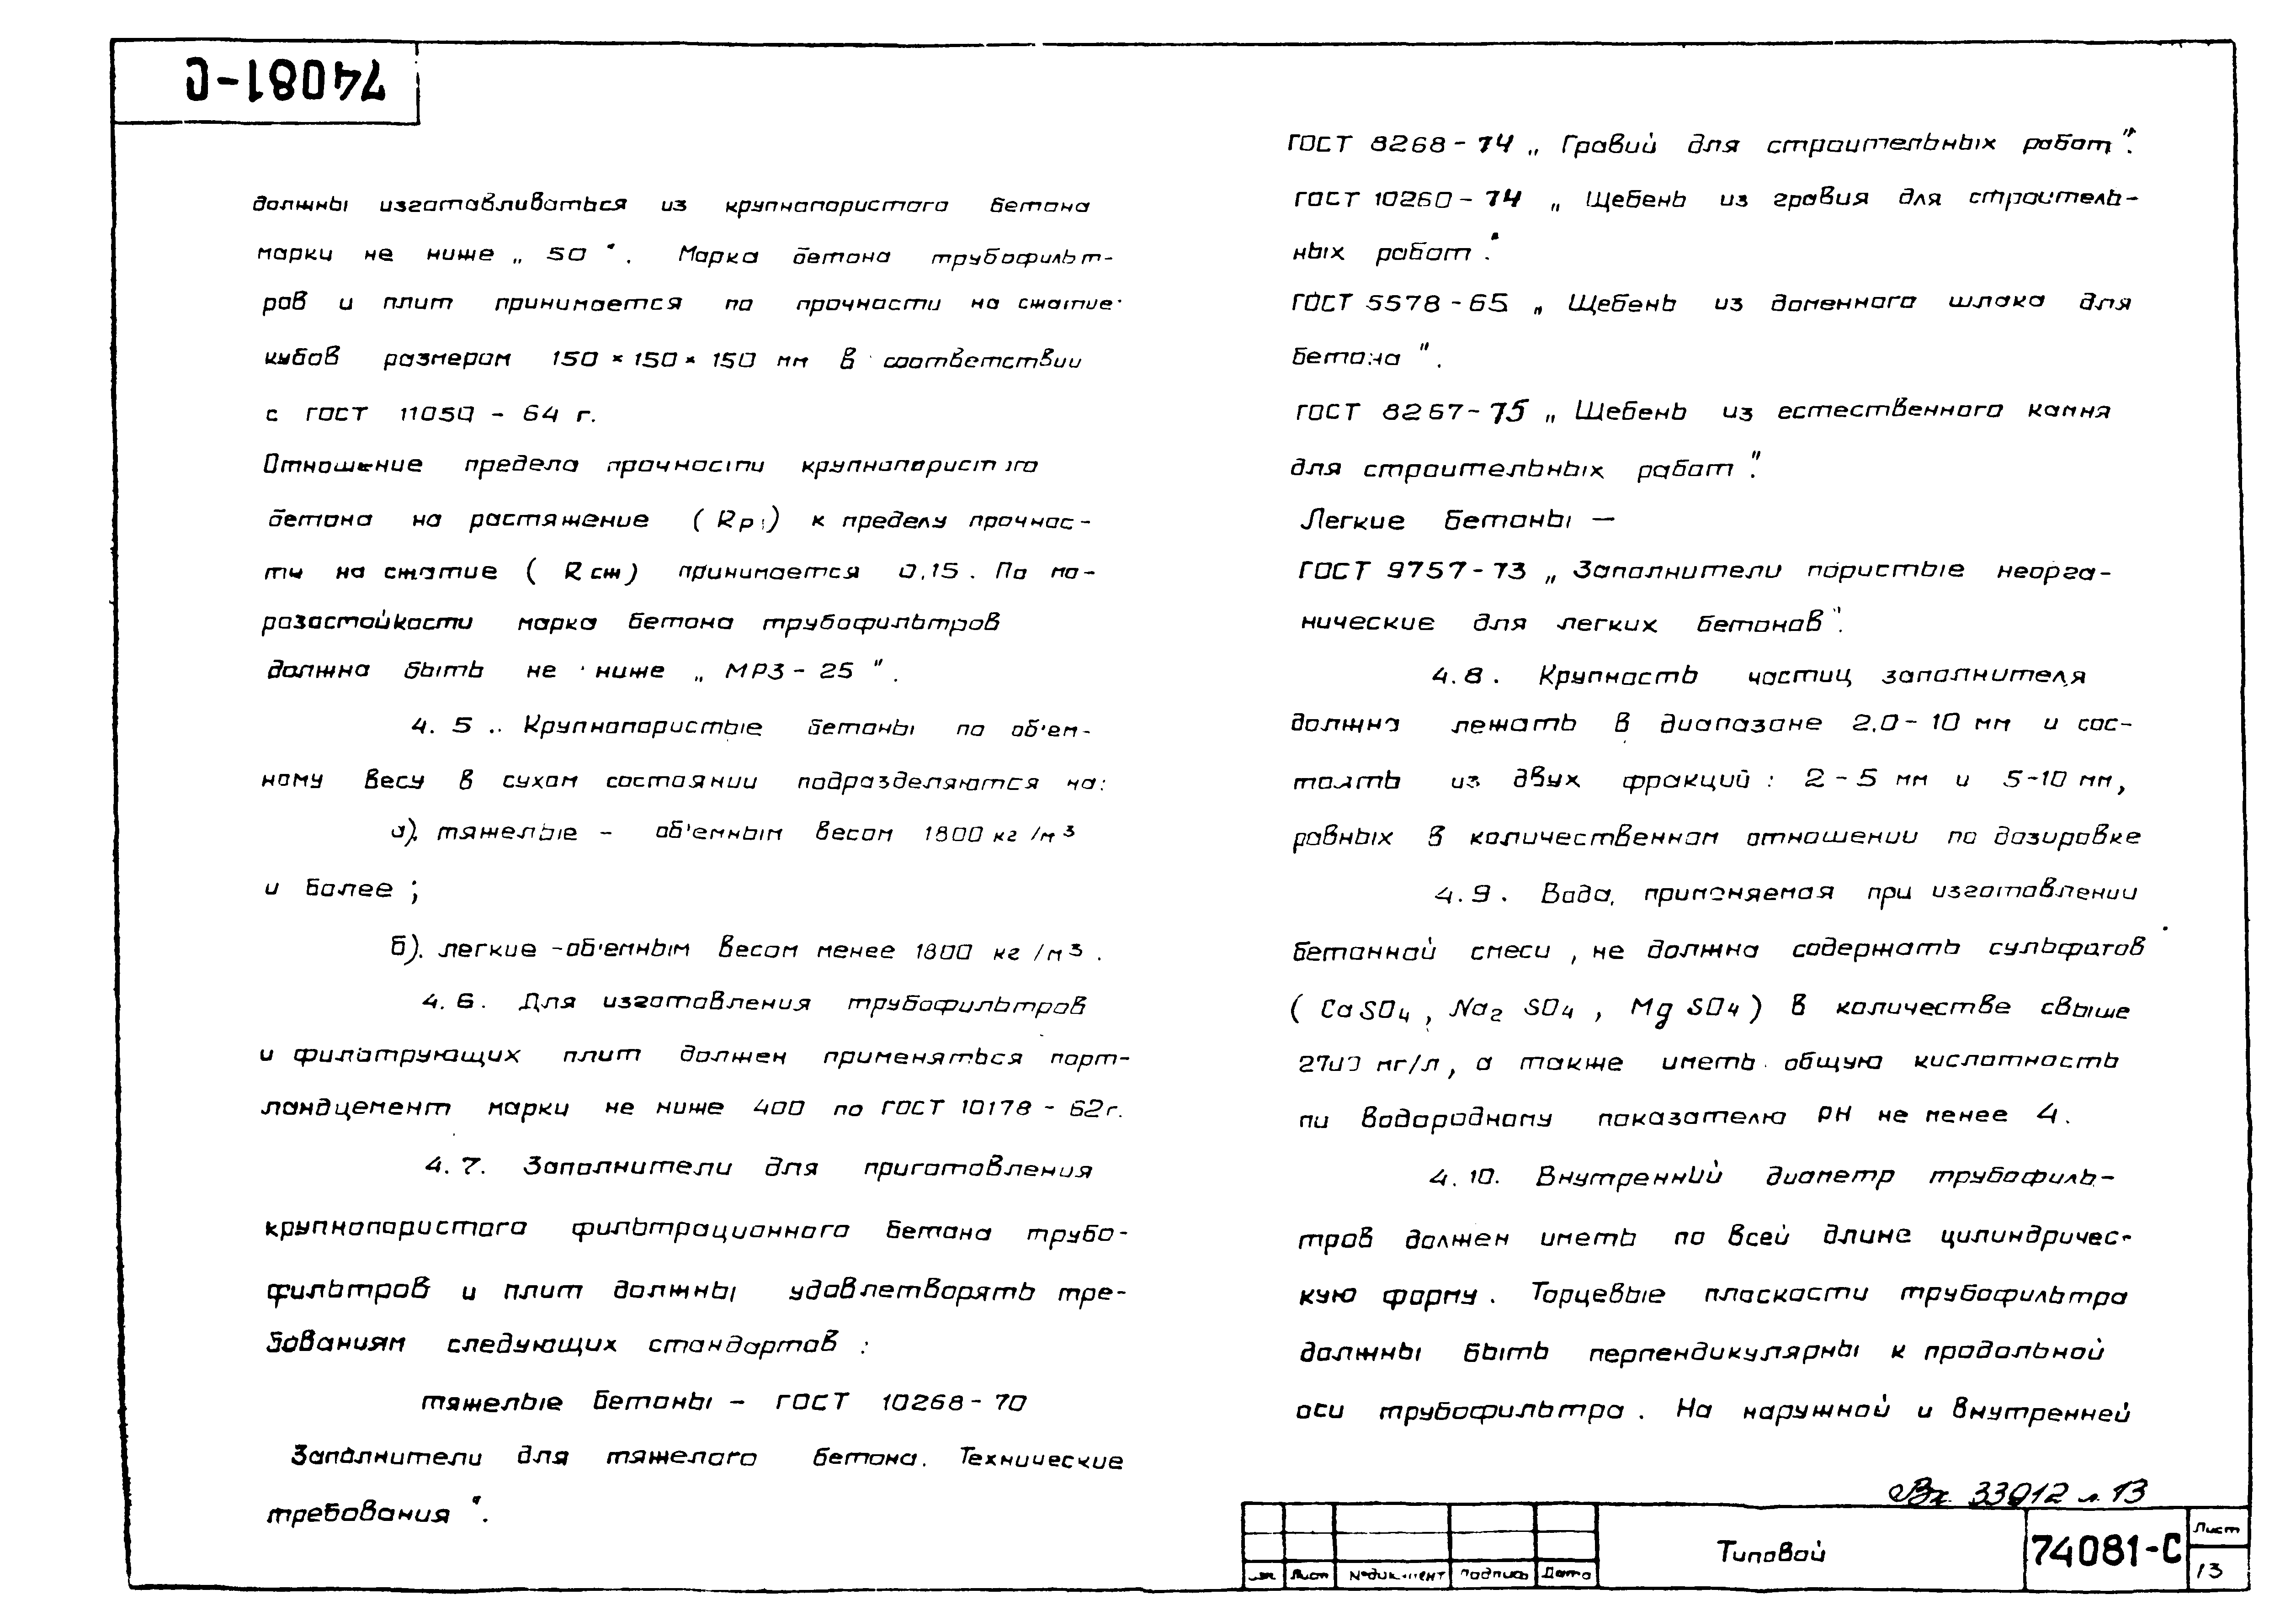 74081-С
должны изготавливаться из крупнопористого бетона
марки не ниже „ 50 ". Марка бетона трубофильт-
ров и плит принимается по прочности на сжатие
кубов размером 150×150×150 мм в соответствии
с ГОСТ 11050 - 64 г.
Отношение предела прочности крупнопористого
бетона на растяжение (Rр) к пределу прочнос-
ти на сжатие (Rсж) принимается 0,15. По мо-
розостойкости марка бетона трубофильтров
должна быть не ниже „ МРЗ - 25 ".
4.5. Крупнопористые бетоны по об'ем-
ному весу в сухом состоянии подразделяются на:
а). тяжелые - об'емным весом 1800 кг/м³
и более;
б). легкие - об'емным весом менее 1800 кг/м³.
4.6. Для изготовления трубофильтров
и фильтрующих плит должен применяться порт-
ландцемент марки не ниже 400 по ГОСТ 10178 - 62г.
4.7. Заполнители для приготовления
крупнопористого фильтрационного бетона трубо-
фильтров и плит должны удовлетворять тре-
бованиям следующих стандартов:
тяжелые бетоны - ГОСТ 10268 - 70
Заполнители для тяжелого бетона. Технические
требования ".
ГОСТ 8268 - 74 „ Гравий для строительных работ".
ГОСТ 10260 - 74 „ Щебень из гравия для строитель-
ных работ".
ГОСТ 5578 - 65 „ Щебень из доменного шлака для
бетона ".
ГОСТ 8267 - 75 „ Щебень из естественного камня
для строительных работ".
Легкие бетоны —
ГОСТ 9757 - 73 „ Заполнители пористые неорга-
нические для легких бетонов".
4.8. Крупность частиц заполнителя
должна лежать в диапазоне 2,0 - 10 мм и сос-
тоять из двух фракций: 2 - 5 мм и 5-10 мм,
равных в количественном отношении по дозировке
4.9. Вода, применяемая при изготовлении
бетонной смеси, не должна содержать сульфатов
(CaSO4, Na2 SO4, Mg SO4) в количестве свыше
2700 мг/л, а также иметь общую кислотность
пи водородному показателю РН не менее 4.
4.10. Внутренний диаметр трубофиль-
тров должен иметь по всей длине цилиндричес-
кую форму. Торцевые плоскости трубофильтра
должны быть перпендикулярны к продольной
оси трубофильтра. На наружной и внутренней
Вх. 33912 л. 13
Изм Лист №документ Подпись Дата
Типовой
74081-С
Лист
13